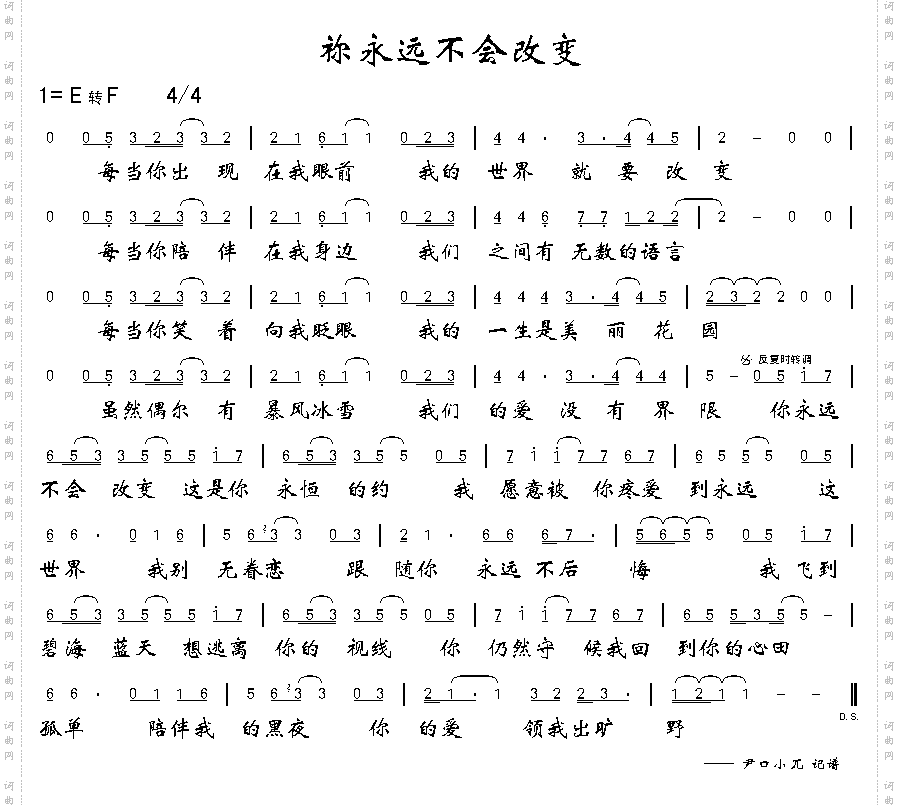 祢永远不会改变
1= E 转 F 4/4
0 0 5 3 2 3 3 2 | 2 1 6 1 1 0 2 3 | 4 4 · 3 · 4 4 5 | 2 - 0 0 |
每当你出 现 在我眼前 我的 世界 就 要 改 变
0 0 5 3 2 3 3 2 | 2 1 6 1 1 0 2 3 | 4 4 6 7 7 1 2 2 | 2 - 0 0 |
每当你陪 伴 在我身边 我们 之间有 无数的语言
0 0 5 3 2 3 3 2 | 2 1 6 1 1 0 2 3 | 4 4 4 3 · 4 4 5 | 2 3 2 2 0 0 |
每当你笑 着 向我眨眼 我的 一生是美 丽 花 园
反复时转调
0 0 5 3 2 3 3 2 | 2 1 6 1 1 0 2 3 | 4 4 · 3 · 4 4 4 | 5 - 0 5 i 7 |
虽然偶尔 有 暴风冰雪 我们 的爱 没 有 界 限 你永远
6 5 3 3 5 5 5 i 7 | 6 5 3 3 5 5 0 5 | 7 i i 7 7 6 7 | 6 5 5 5 0 5 |
不会 改变 这是你 永恒 的约 我 愿意被 你疼爱 到永远 这
6 6 · 0 1 6 | 5 6 3 3 0 3 | 2 1 · 6 6 6 7 · | 5 6 5 5 0 5 i 7 |
世界 我别 无眷恋 跟 随你 永远 不后 悔 我飞到
6 5 3 3 5 5 5 i 7 | 6 5 3 3 5 5 0 5 | 7 i i 7 7 6 7 | 6 5 5 3 5 5 - |
碧海 蓝天 想逃离 你的 视线 你 仍然守 候我回 到你的心田
6 6 · 0 1 1 6 | 5 6 3 3 0 3 | 2 1 · 1 3 2 2 3 · | 1 2 1 1 - - ‖
D. S.
孤单 陪伴我 的黑夜 你 的爱 领我出旷 野
—— 尹口小兀 记谱
词曲网
词曲网
词曲网
词曲网
词曲网
词曲网
词曲网
词曲网
词曲网
词曲网
词曲网
词曲网
词曲网
词曲网